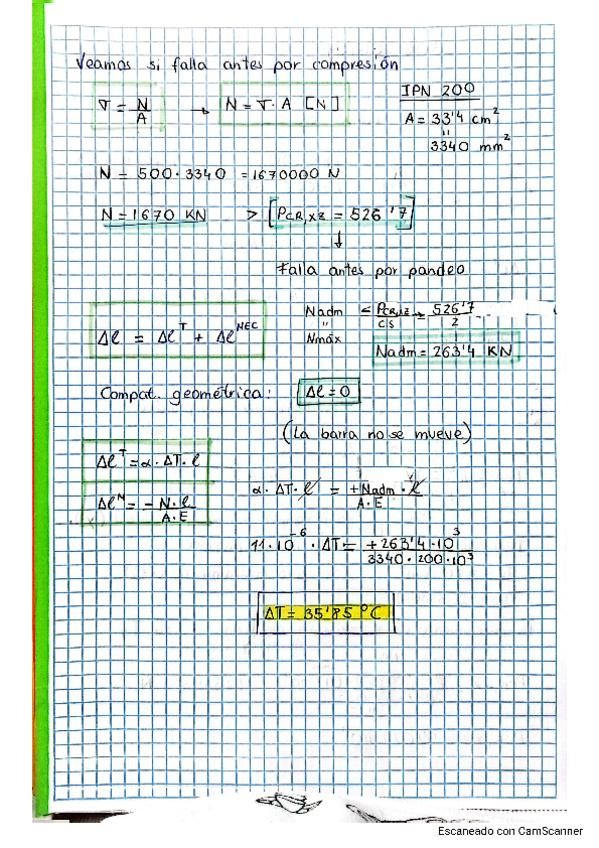 Veamos si falla antes por compresión
σ = N/A → N = σ · A [N]
IPN 200
A = 33'4 cm²
"
3340 mm²
N = 500 · 3340 = 1670000 N
N = 1670 KN > [PCR,xz = 526'7]
↓
Falla antes por pandeo
Δl = Δl^T + Δl^NEC
Nadm = PCR,xz/CS = 526'7/2
"
Nmáx
Nadm = 263'4 KN
Compat. geométrica: Δl = 0
(La barra no se mueve)
Δl^T = α · ΔT · l
Δl^N = - N·l/A·E
α · ΔT · l = +Nadm · l/A·E
11·10⁻⁶ · ΔT = +263'4·10³/3340·200·10³
ΔT = 35'85 °C
Escaneado con CamScanner